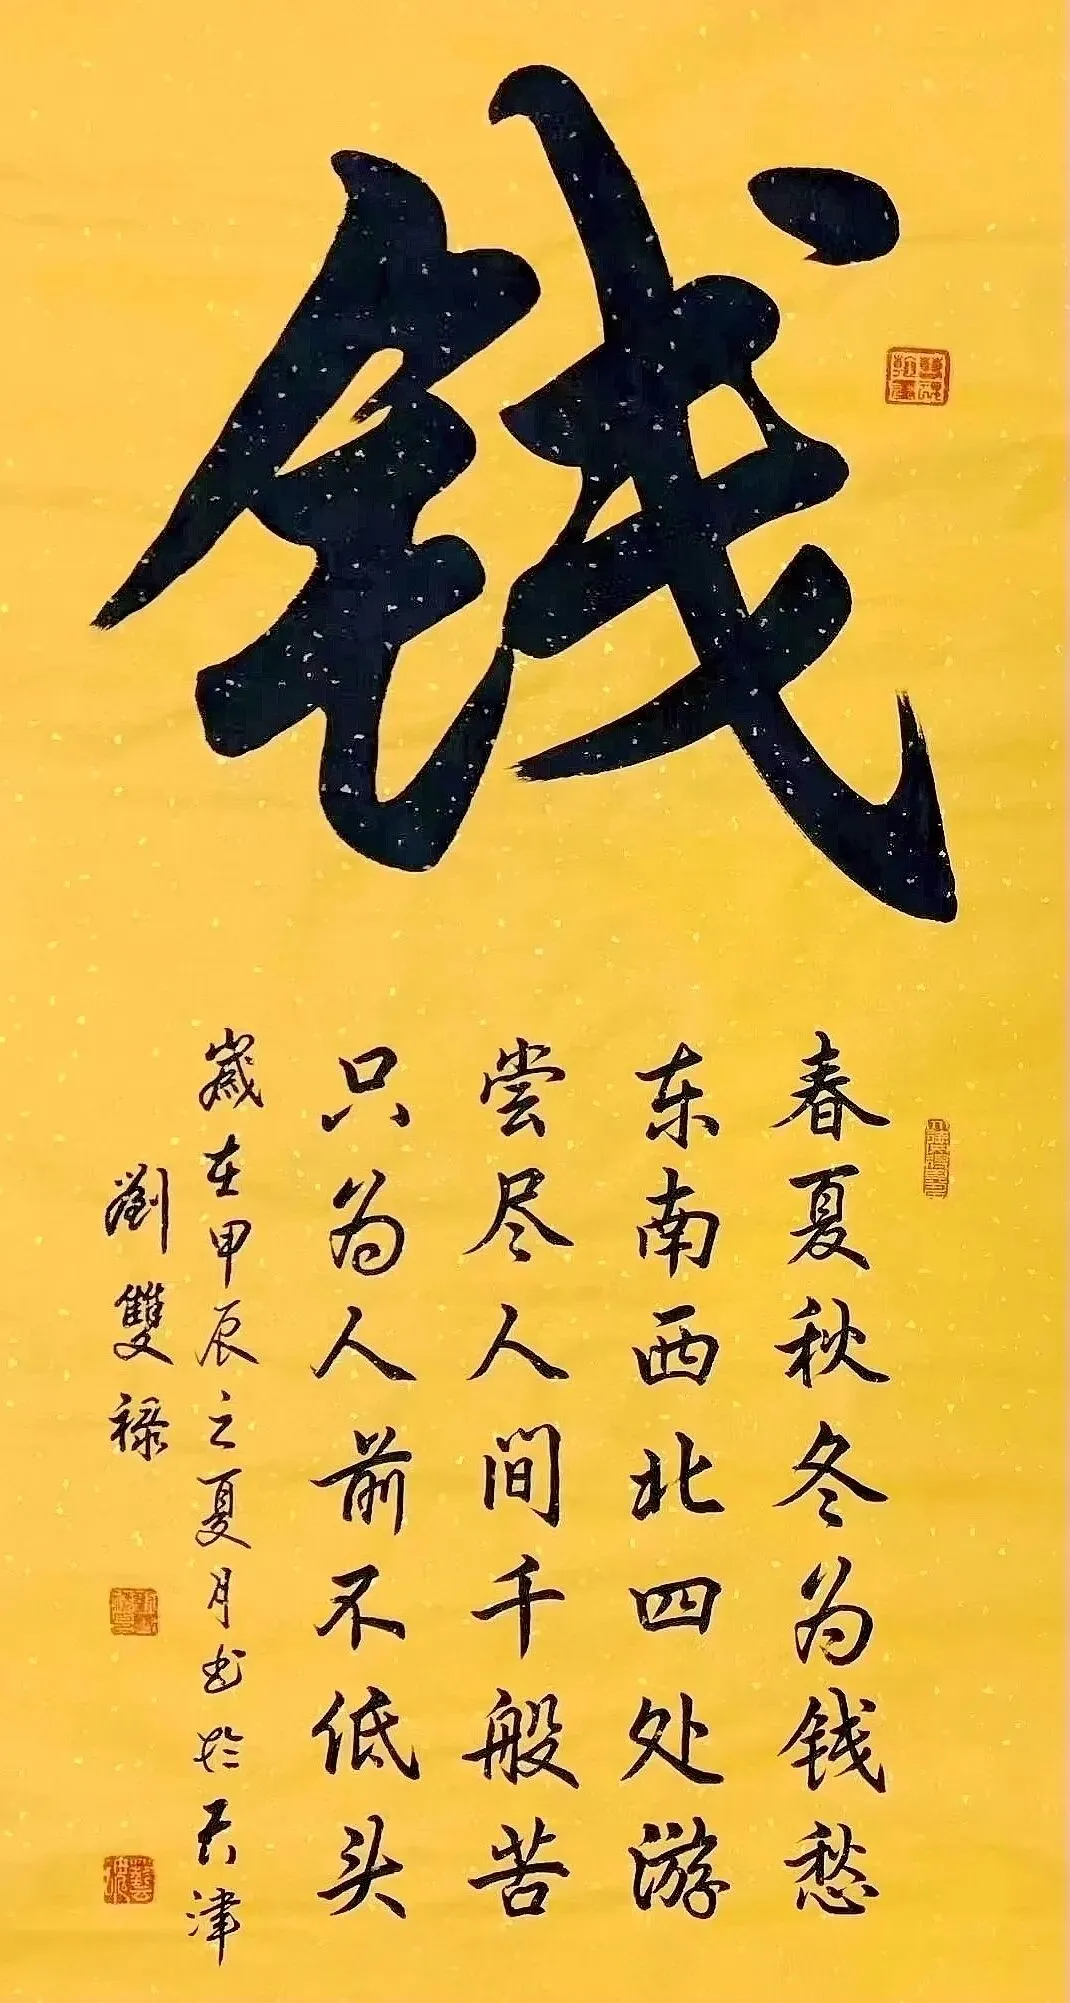 钱
春夏秋冬为钱愁
东南西北四处游
尝尽人间千般苦
只为人前不低头
歳在甲辰之夏月书於天津
劉雙禄